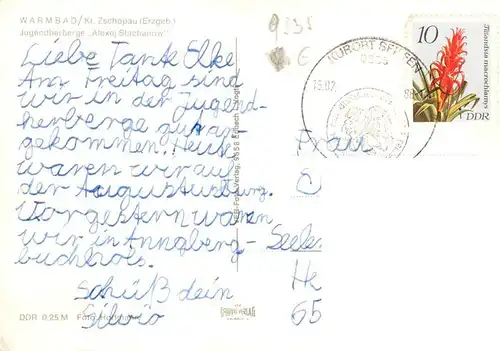 WARMBAD/Kr. Zschopau (Erzgeb.)
Jugendherberge „Alexej Stachanow"
Liebe Tante Elke
Am Freitag sind
wir in der Jugend-
herberge gut an-
gekommen. Heute
waren wir auf
der Augustusburg.
Vorgestern waren
wir in Annaberg-
buchholz.
Schüß dein
Silvio
DDR 0,25 M Foto:
9335
KURORT SEIFFEN
9335
10
Tillandsia macrochlamys
DDR
Frau
Seele
He
65